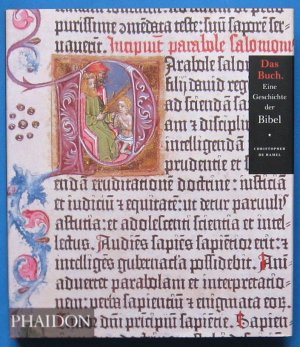 purissime ⁊ mēdata teste: suū saporē ser-
uauerit. Incipiūt parabole salomonis
filij dauid reg
ad sciendā sa
am ⁊ disciplin
intelligenda
prudentie et
eruditationē doctrine: iusticiā
et iudiciū ⁊ equitatem: ut detur paruul
astucia: et adolescenti scientia et intel-
lectus. Audiēs sapiēs sapiētior erit: ⁊
intelligēs gubernacla possidebit. Ani-
aduertet parabolam et interpretatio-
nem: verba sapientiū ⁊ enigmata eor
dñi principiū sapiētie. Sapien-
Das
Buch.
Eine
Geschichte
der
Bibel
•
CHRISTOPHER
DE HAMEL
PHAIDON